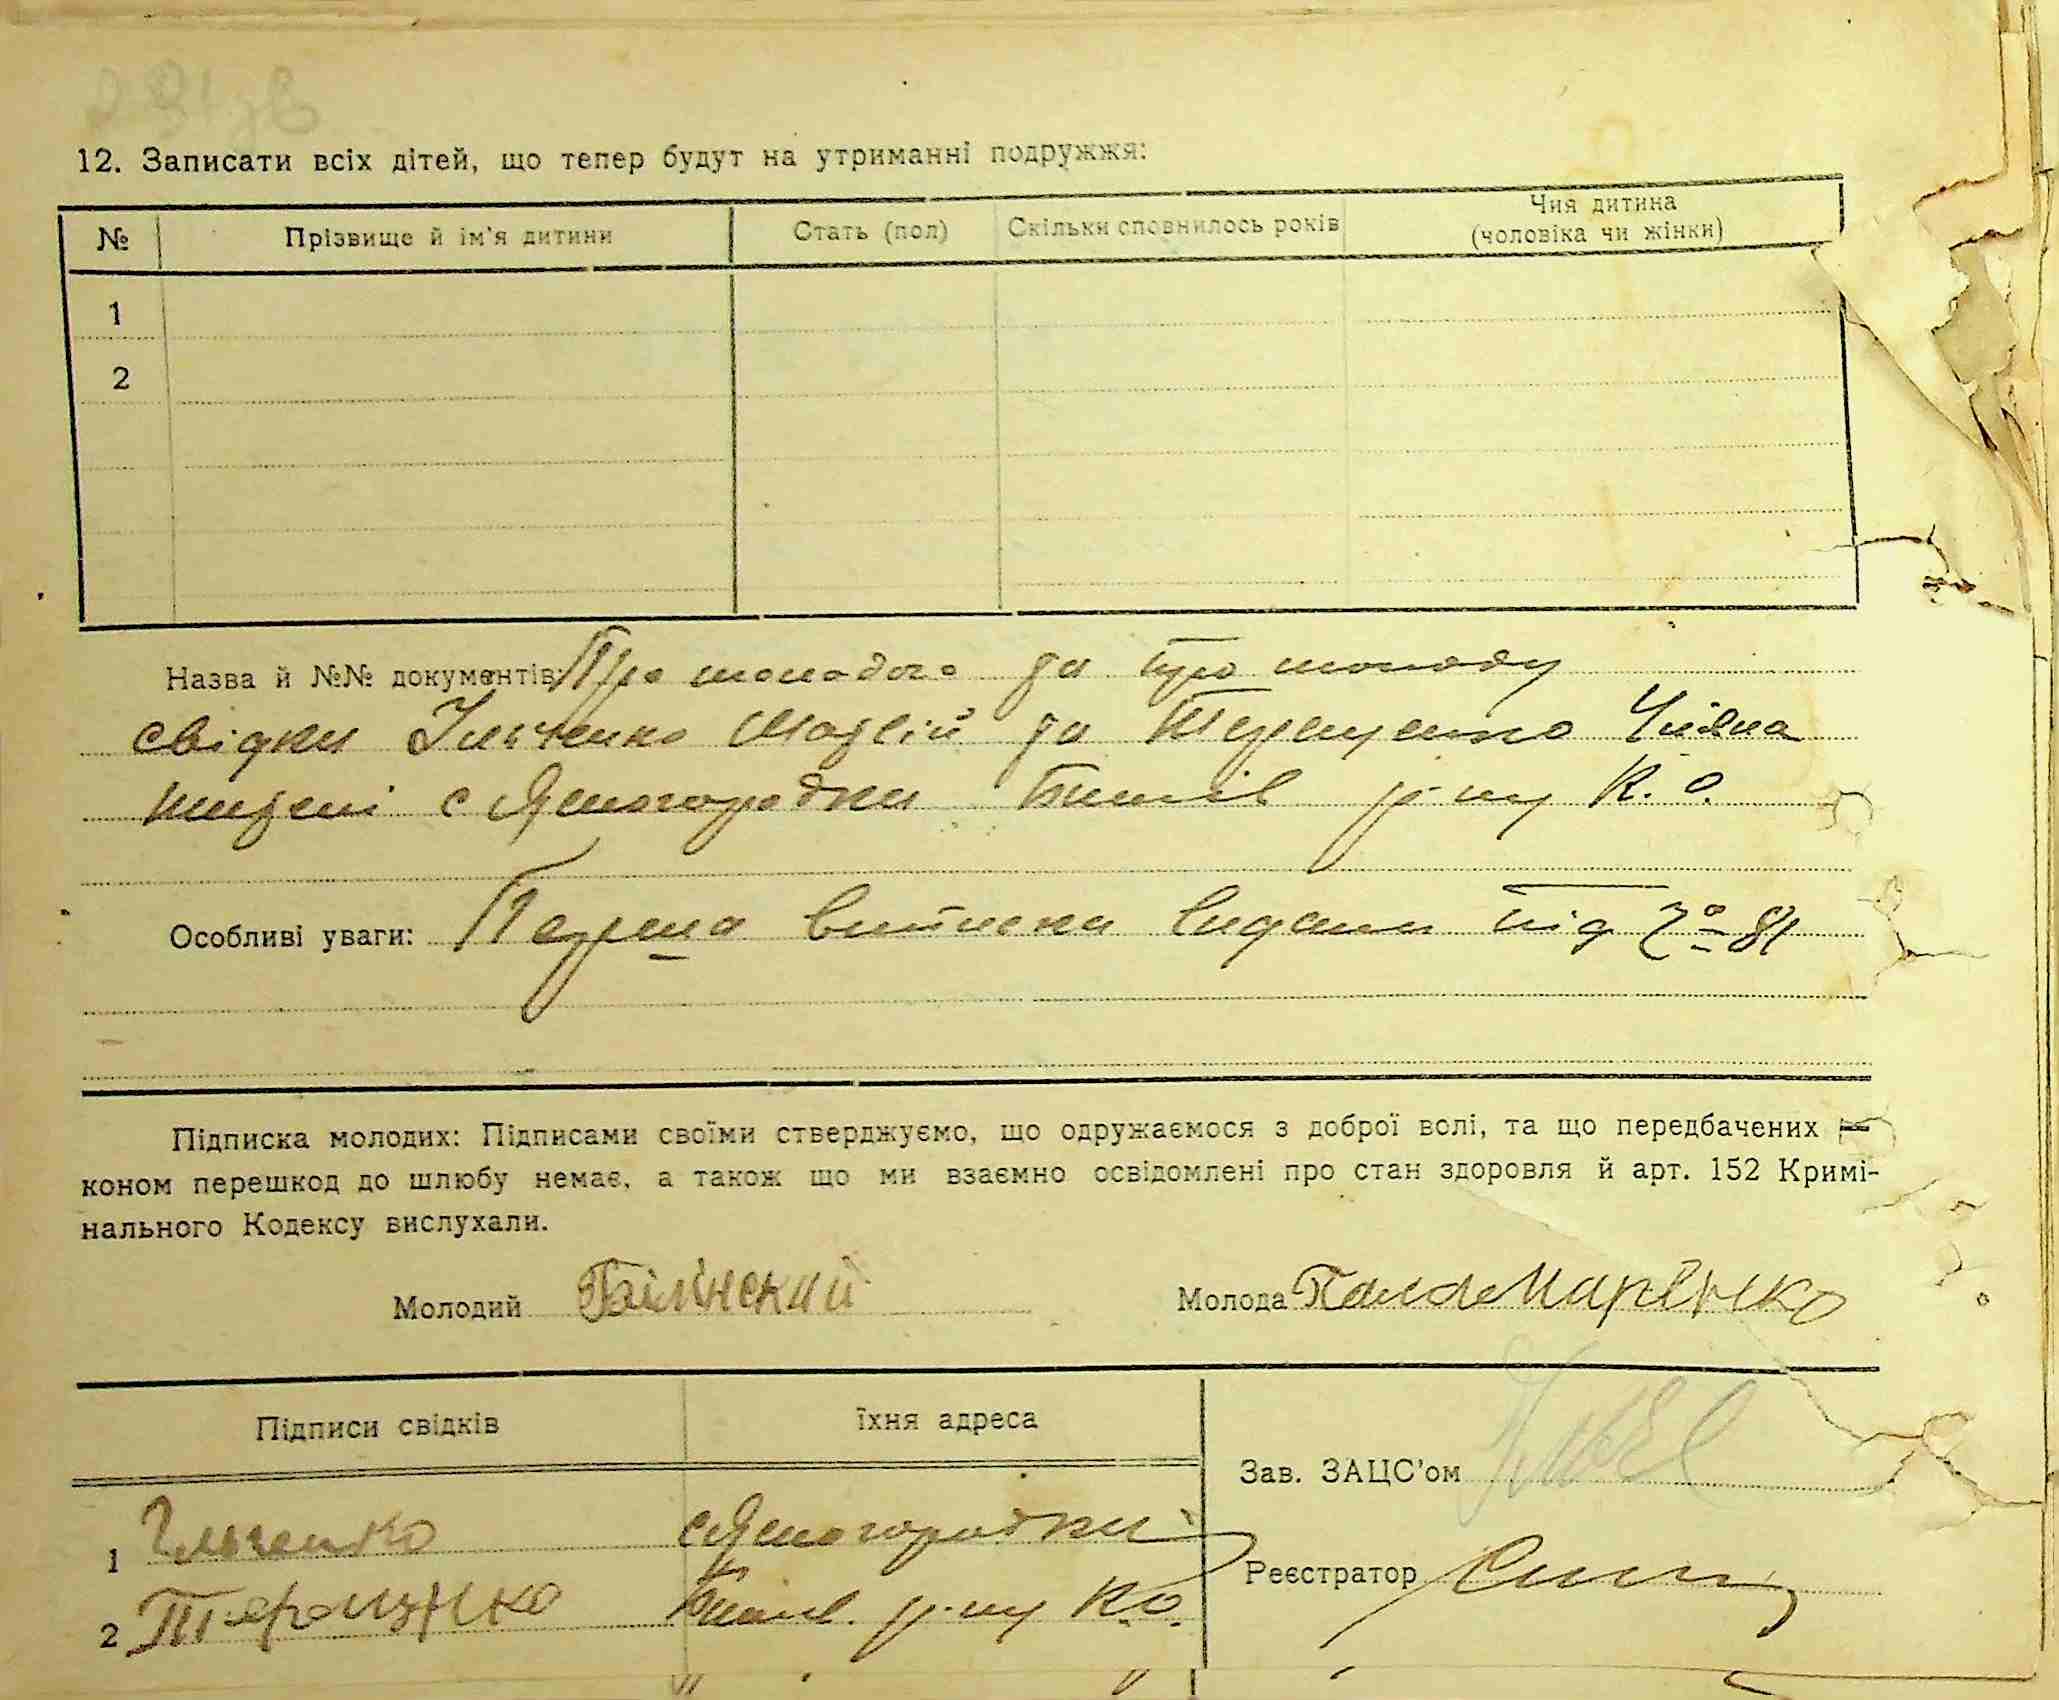 12. Записати всіх дітей, що тепер будут на утриманні подружжя:
№ Прізвище й ім'я дитини Стать (пол) Скільки сповнилось років Чия дитина (чоловіка чи жінки)
1
2
Назва й №№ документів: Про молодого та про молоду
свідки Ільченко Матвій та Терещенко Уляна
жителі с Ясногородки Бишів р-ну К. О.
Особливі уваги: Перша виписка видана під № 81
Підписка молодих: Підписами своїми стверджуємо, що одружаємося з доброї волі, та що передбачених
коном перешкод до шлюбу немає, а також що ми взаємно освідомлені про стан здоровля й арт. 152 Кримі-
нального Кодексу вислухали.
Молодий Білінский Молода Паламаренко
Підписи свідків їхня адреса
Зав. ЗАЦС'ом
1 Ільченко с Ясногородки
Реєстратор
2 Терещенко Бишів. р-ну К.О.